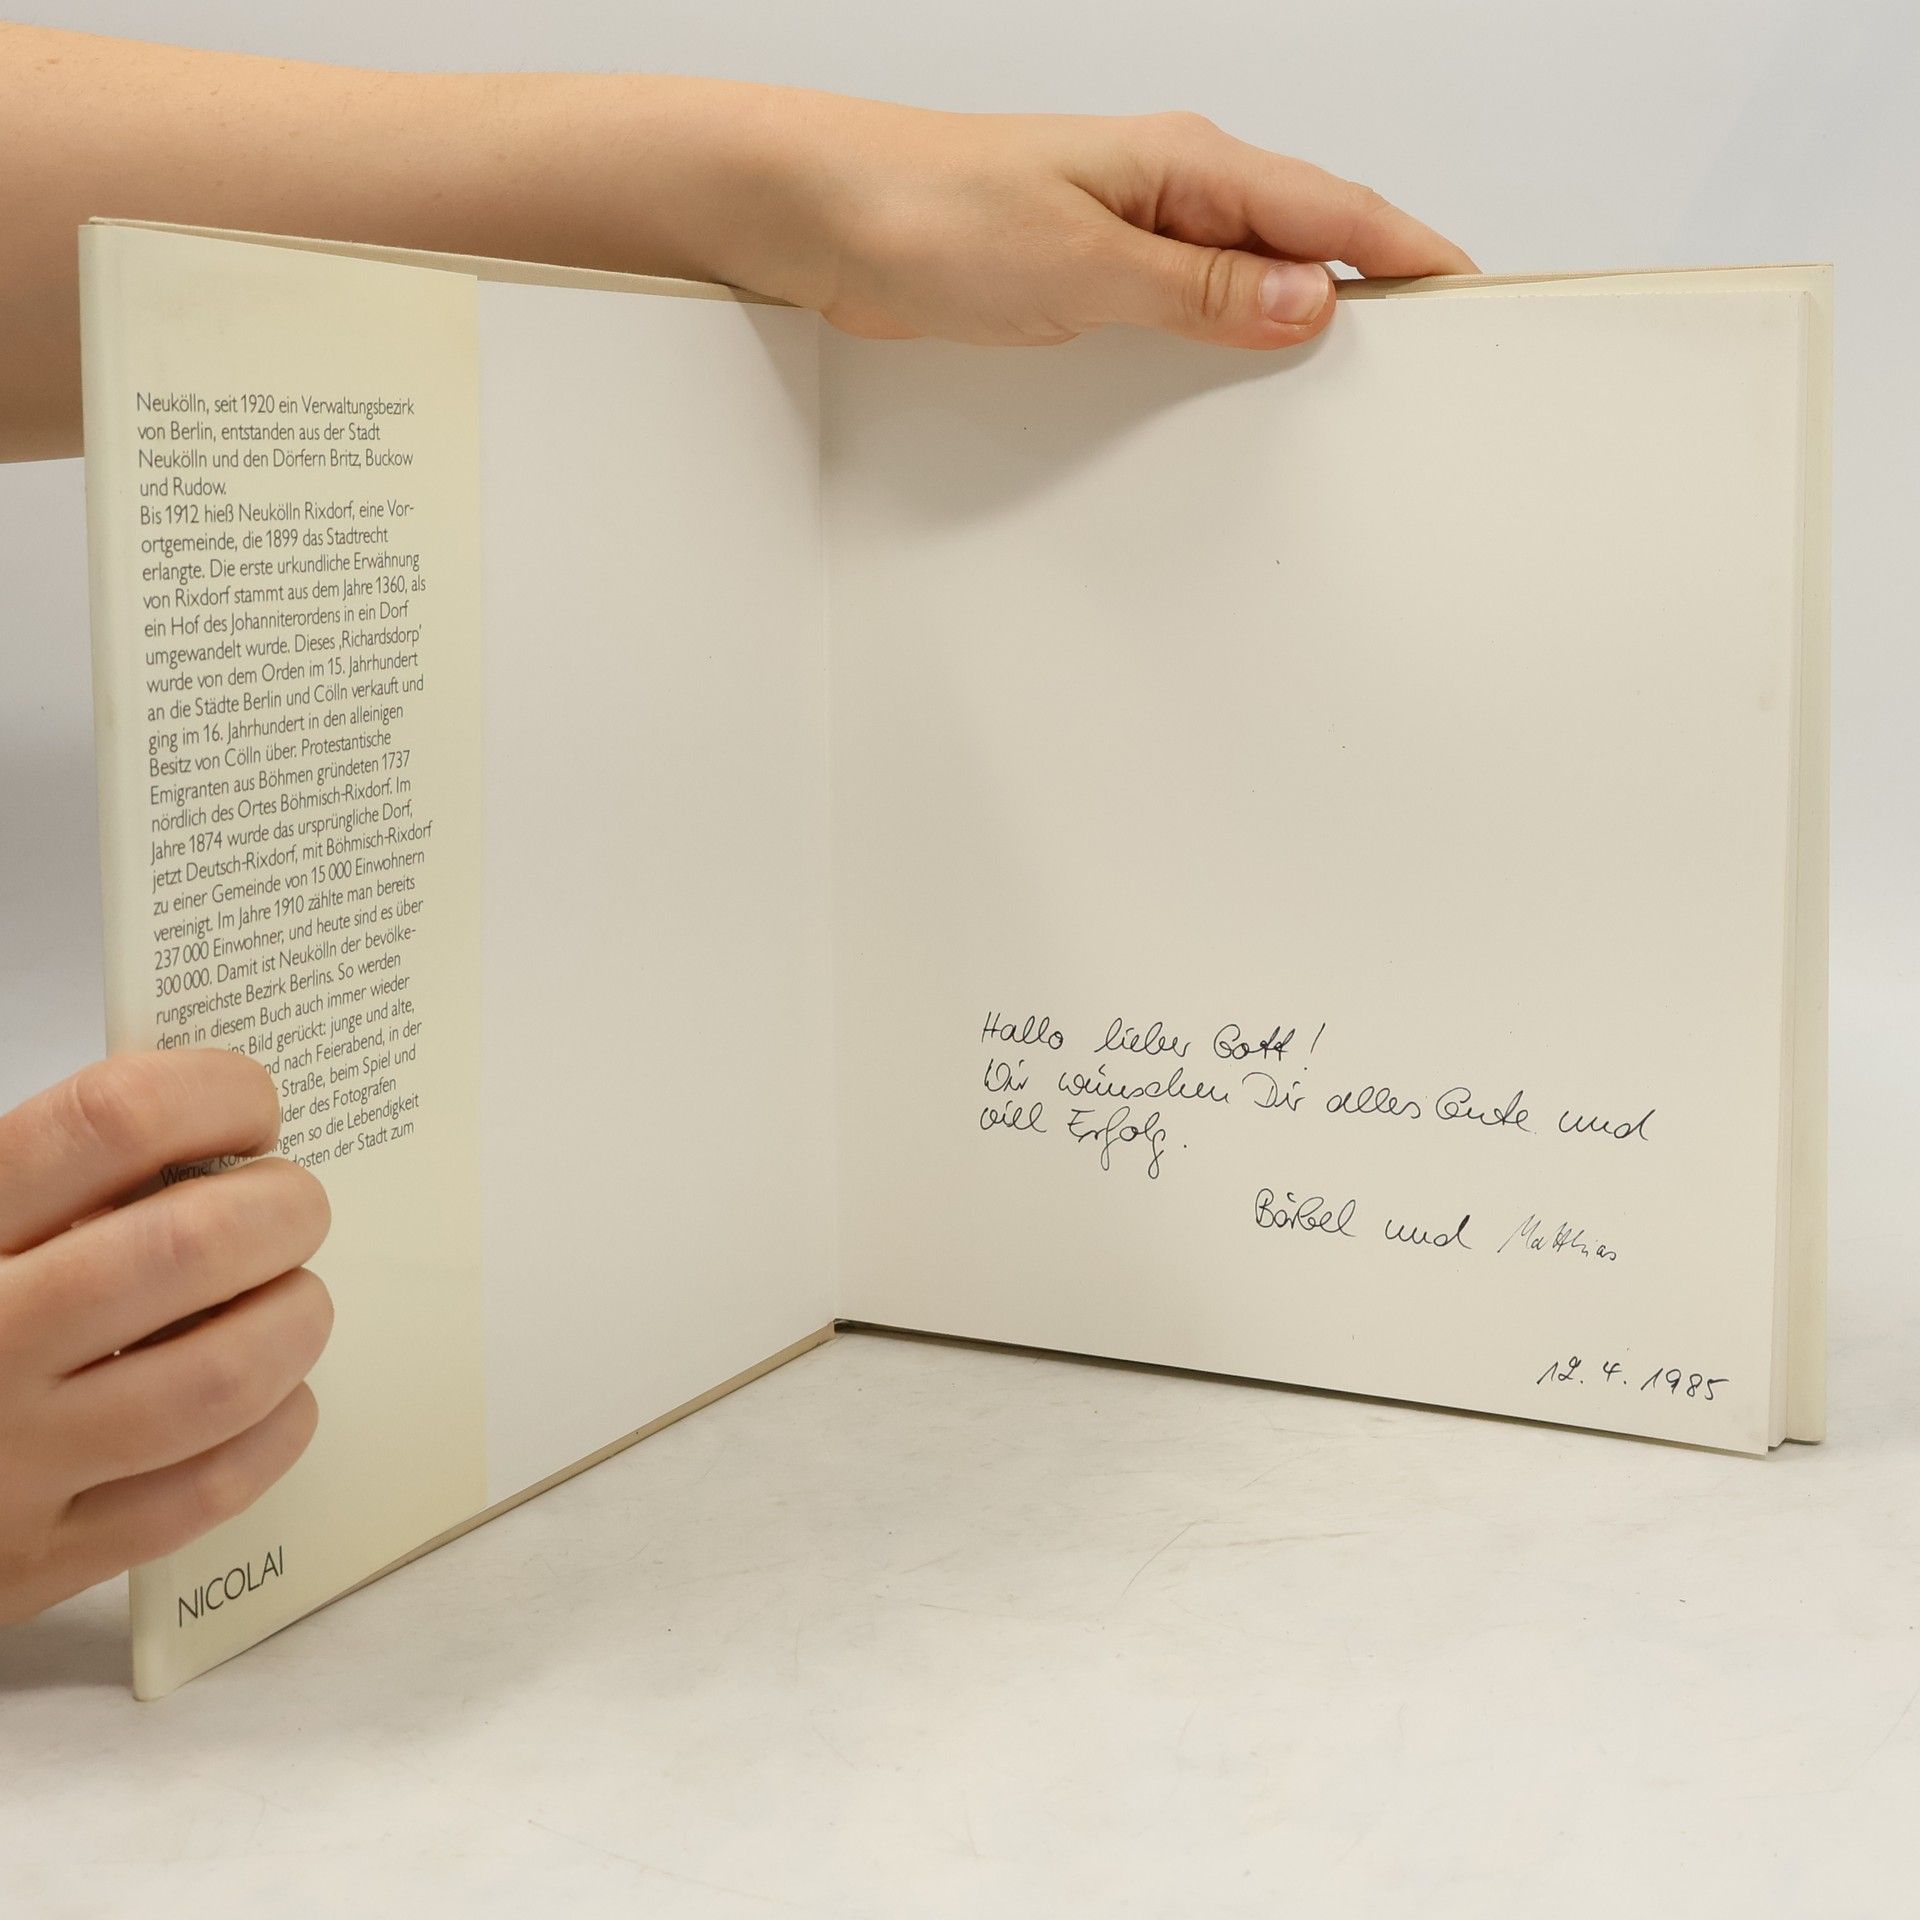 Neukölln, seit 1920 ein Verwaltungsbezirk
von Berlin, entstanden aus der Stadt
Neukölln und den Dörfern Britz, Buckow
und Rudow.
Bis 1912 hieß Neukölln Rixdorf, eine Vor-
ortgemeinde, die 1899 das Stadtrecht
erlangte. Die erste urkundliche Erwähnung
von Rixdorf stammt aus dem Jahre 1360, als
ein Hof des Johanniterordens in ein Dorf
umgewandelt wurde. Dieses ‚Richardsdorp'
wurde von dem Orden im 15. Jahrhundert
an die Städte Berlin und Cölln verkauft und
ging im 16. Jahrhundert in den alleinigen
Besitz von Cölln über. Protestantische
Emigranten aus Böhmen gründeten 1737
nördlich des Ortes Böhmisch-Rixdorf. Im
Jahre 1874 wurde das ursprüngliche Dorf,
jetzt Deutsch-Rixdorf, mit Böhmisch-Rixdorf
zu einer Gemeinde von 15 000 Einwohnern
vereinigt. Im Jahre 1910 zählte man bereits
237 000 Einwohner, und heute sind es über
300 000. Damit ist Neukölln der bevölke-
rungsreichste Bezirk Berlins. So werden
denn in diesem Buch auch immer wieder
ins Bild gerückt: junge und alte,
nd nach Feierabend, in der
Straße, beim Spiel und
lder des Fotografen
Werner ngen so die Lebendigkeit
dosten der Stadt zum
NICOLAI
Hallo lieber Gott!
Wir wünschen Dir alles Gute und
viel Erfolg.
Bärbel und Matthias
12. 4. 1985